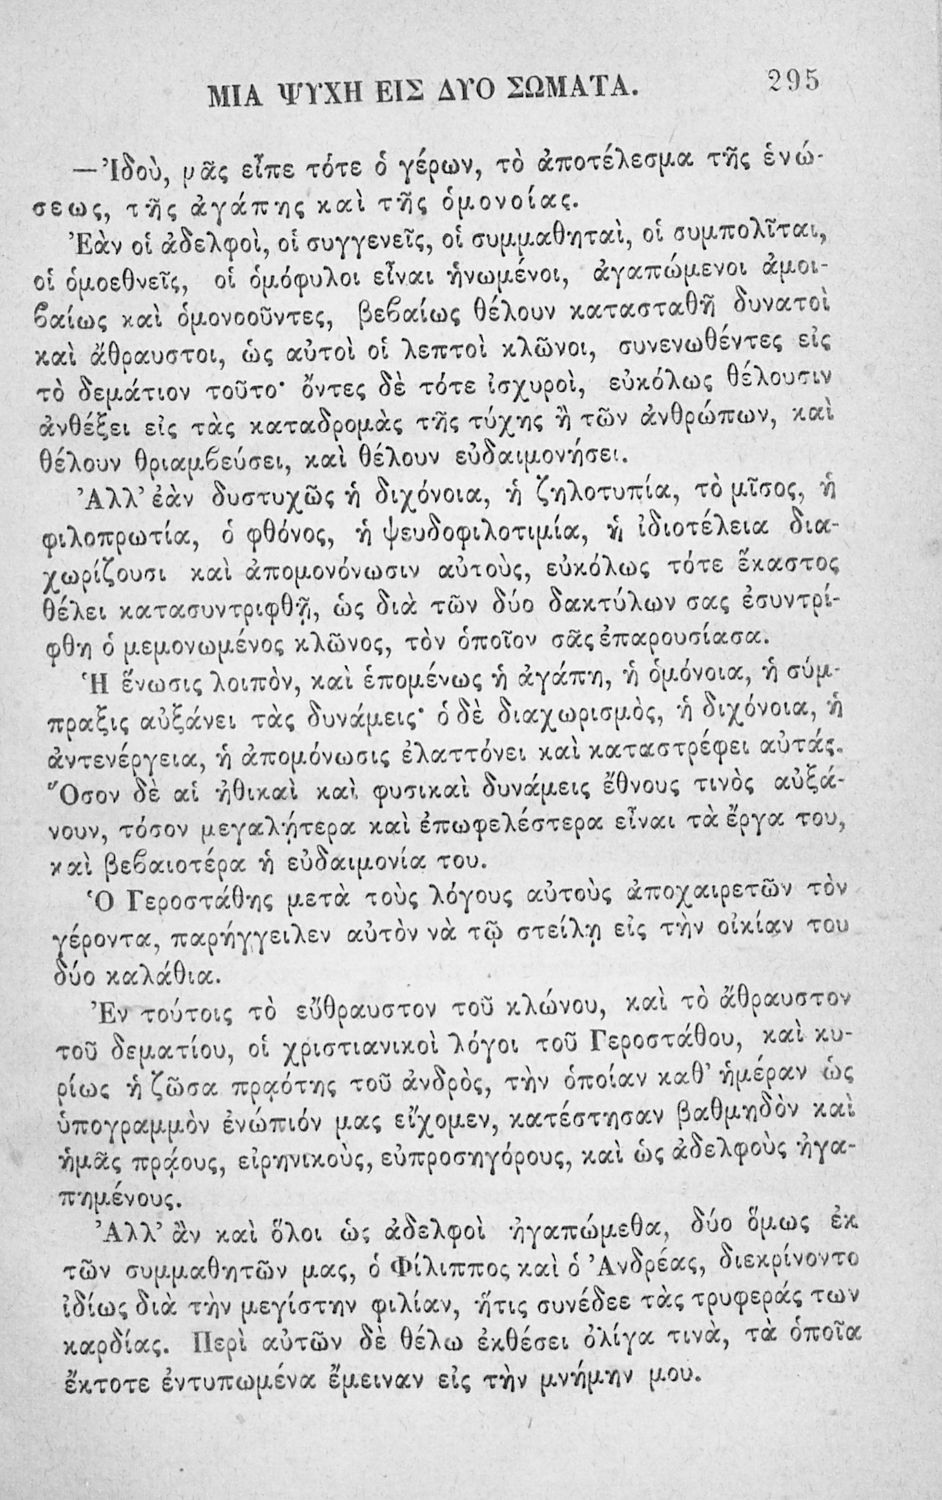 ΜΙΑ ΨΥΧΗ ΕΙΣ ΔΥΟ ΣΩΜΑΤΑ. 295
—Ἰδοὺ, μᾶς εἶπε τότε ὁ γέρων, τὸ ἀποτέλεσμα τῆς ἑνώ-
σεως, τῆς ἀγάπης καὶ τῆς ὁμονοίας.
Ἐὰν οἱ ἀδελφοὶ, οἱ συγγενεῖς, οἱ συμμαθηταὶ, οἱ συμπολῖται,
οἱ ὁμοεθνεῖς, οἱ ὁμόφυλοι εἶναι ἡνωμένοι, ἀγαπώμενοι ἀμοι-
βαίως καὶ ὁμονοοῦντες, βεβαίως θέλουν κατασταθῆ δυνατοὶ
καὶ ἄθραυστοι, ὡς αὐτοὶ οἱ λεπτοὶ κλῶνοι, συνενωθέντες εἰς
τὸ δεμάτιον τοῦτο· ὄντες δὲ τότε ἰσχυροὶ, εὐκόλως θέλουσιν
ἀνθέξει εἰς τὰς καταδρομὰς τῆς τύχης ἢ τῶν ἀνθρώπων, καὶ
θέλουν θριαμβεύσει, καὶ θέλουν εὐδαιμονήσει.
Ἀλλ’ ἐὰν δυστυχῶς ἡ διχόνοια, ἡ ζηλοτυπία, τὸ μῖσος, ἡ
φιλοπρωτία, ὁ φθόνος, ἡ ψευδοφιλοτιμία, ἡ ἰδιοτέλεια δια-
χωρίζουσι καὶ ἀπομονόνωσιν αὐτοὺς, εὐκόλως τότε ἕκαστος
θέλει κατασυντριφθῆ, ὡς διὰ τῶν δύο δακτύλων σας ἐσυντρί-
φθη ὁ μεμονωμένος κλῶνος, τὸν ὁποῖον σᾶς ἐπαρουσίασα.
Ἡ ἕνωσις λοιπὸν, καὶ ἑπομένως ἡ ἀγάπη, ἡ ὁμόνοια, ἡ σύμ-
πραξις αὐξάνει τὰς δυνάμεις· ὁ δὲ διαχωρισμὸς, ἡ διχόνοια, ἡ
ἀντενέργεια, ἡ ἀπομόνωσις ἐλαττόνει καὶ καταστρέφει αὐτάς.
Ὅσον δὲ αἱ ἠθικαὶ καὶ φυσικαὶ δυνάμεις ἔθνους τινὸς αὐξά-
νουν, τόσον μεγαλήτερα καὶ ἐπωφελέστερα εἶναι τὰ ἔργα του,
καὶ βεβαιοτέρα ἡ εὐδαιμονία του.
Ὁ Γεροστάθης μετὰ τοὺς λόγους αὐτοὺς ἀποχαιρετῶν τὸν
γέροντα, παρήγγειλεν αὐτὸν νὰ τῷ στείλῃ εἰς τὴν οἰκίαν του
δύο καλάθια.
Ἐν τούτοις τὸ εὔθραυστον τοῦ κλώνου, καὶ τὸ ἄθραυστον
τοῦ δεματίου, οἱ χριστιανικοὶ λόγοι τοῦ Γεροστάθου, καὶ κυ-
ρίως ἡ ζῶσα πραότης τοῦ ἀνδρὸς, τὴν ὁποίαν καθ’ ἡμέραν ὡς
ὑπογραμμὸν ἐνώπιόν μας εἴχομεν, κατέστησαν βαθμηδὸν καὶ
ἡμᾶς πράους, εἰρηνικοὺς, εὐπροσηγόρους, καὶ ὡς ἀδελφοὺς ἠγα-
πημένους.
Ἀλλ’ ἂν καὶ ὅλοι ὡς ἀδελφοὶ ἠγαπώμεθα, δύο ὅμως ἐκ
τῶν συμμαθητῶν μας, ὁ Φίλιππος καὶ ὁ Ἀνδρέας, διεκρίνοντο
ἰδίως διὰ τὴν μεγίστην φιλίαν, ἥτις συνέδεε τὰς τρυφεράς των
καρδίας. Περὶ αὐτῶν δὲ θέλω ἐκθέσει ὀλίγα τινὰ, τὰ ὁποῖα
ἔκτοτε ἐντυπωμένα ἔμειναν εἰς τὴν μνήμην μου.